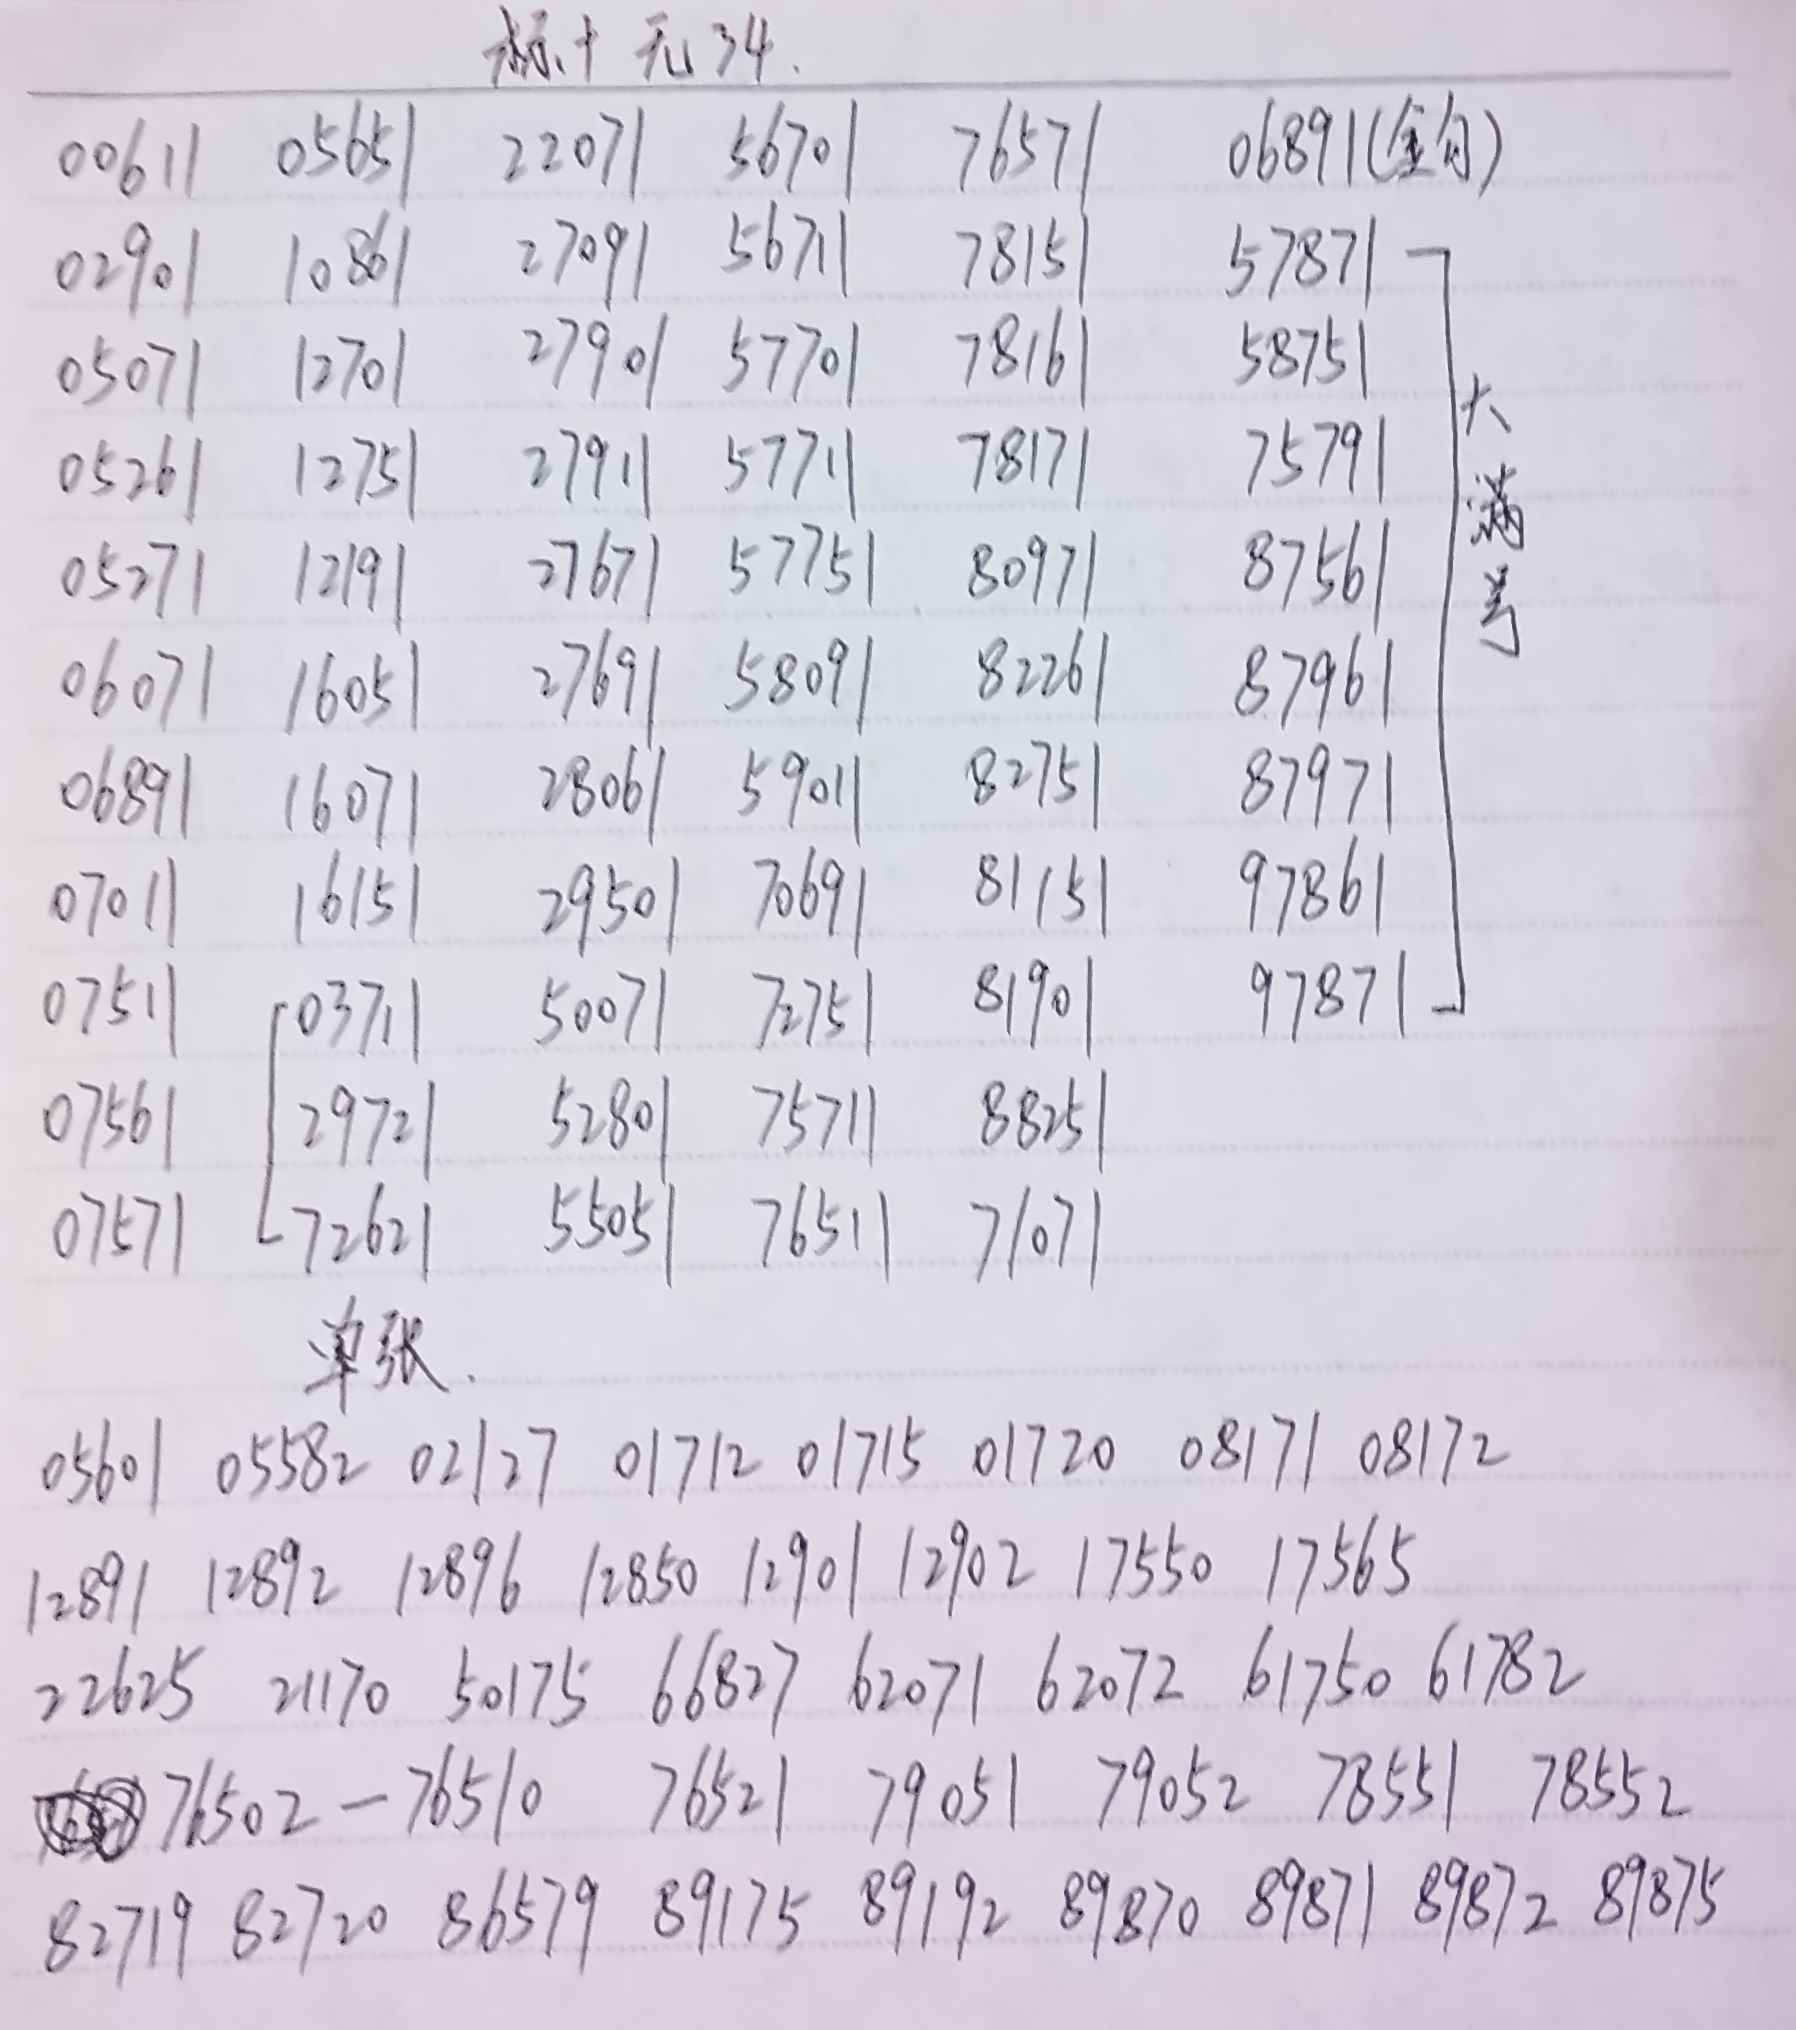 标十 无34.
00611 05651 22071 56701 76571 06891(金勾)
02901 10861 27091 56711 78151 57871
05071 12701 27901 57701 78161 58751
05261 12751 27911 57711 78171 75791
05271 12191 27671 57751 80971 87561
06071 16051 27691 58091 82261 87961
06891 16071 28061 59011 82751 87971
07011 16151 29501 70691 81151 97861
07511 03711 50071 72751 81901 97871
07561 29721 52801 75711 88251
07571 72621 55051 76511 71071
大满号
单张.
05601 05582 02127 01712 01715 01720 08171 08172
12891 12892 12896 12850 12901 12902 17550 17565
22625 21170 50175 66827 62071 62072 61750 61782
76502—76510 76521 79051 79052 78551 78552
82719 82720 86579 89175 89192 89870 89871 89872 89875